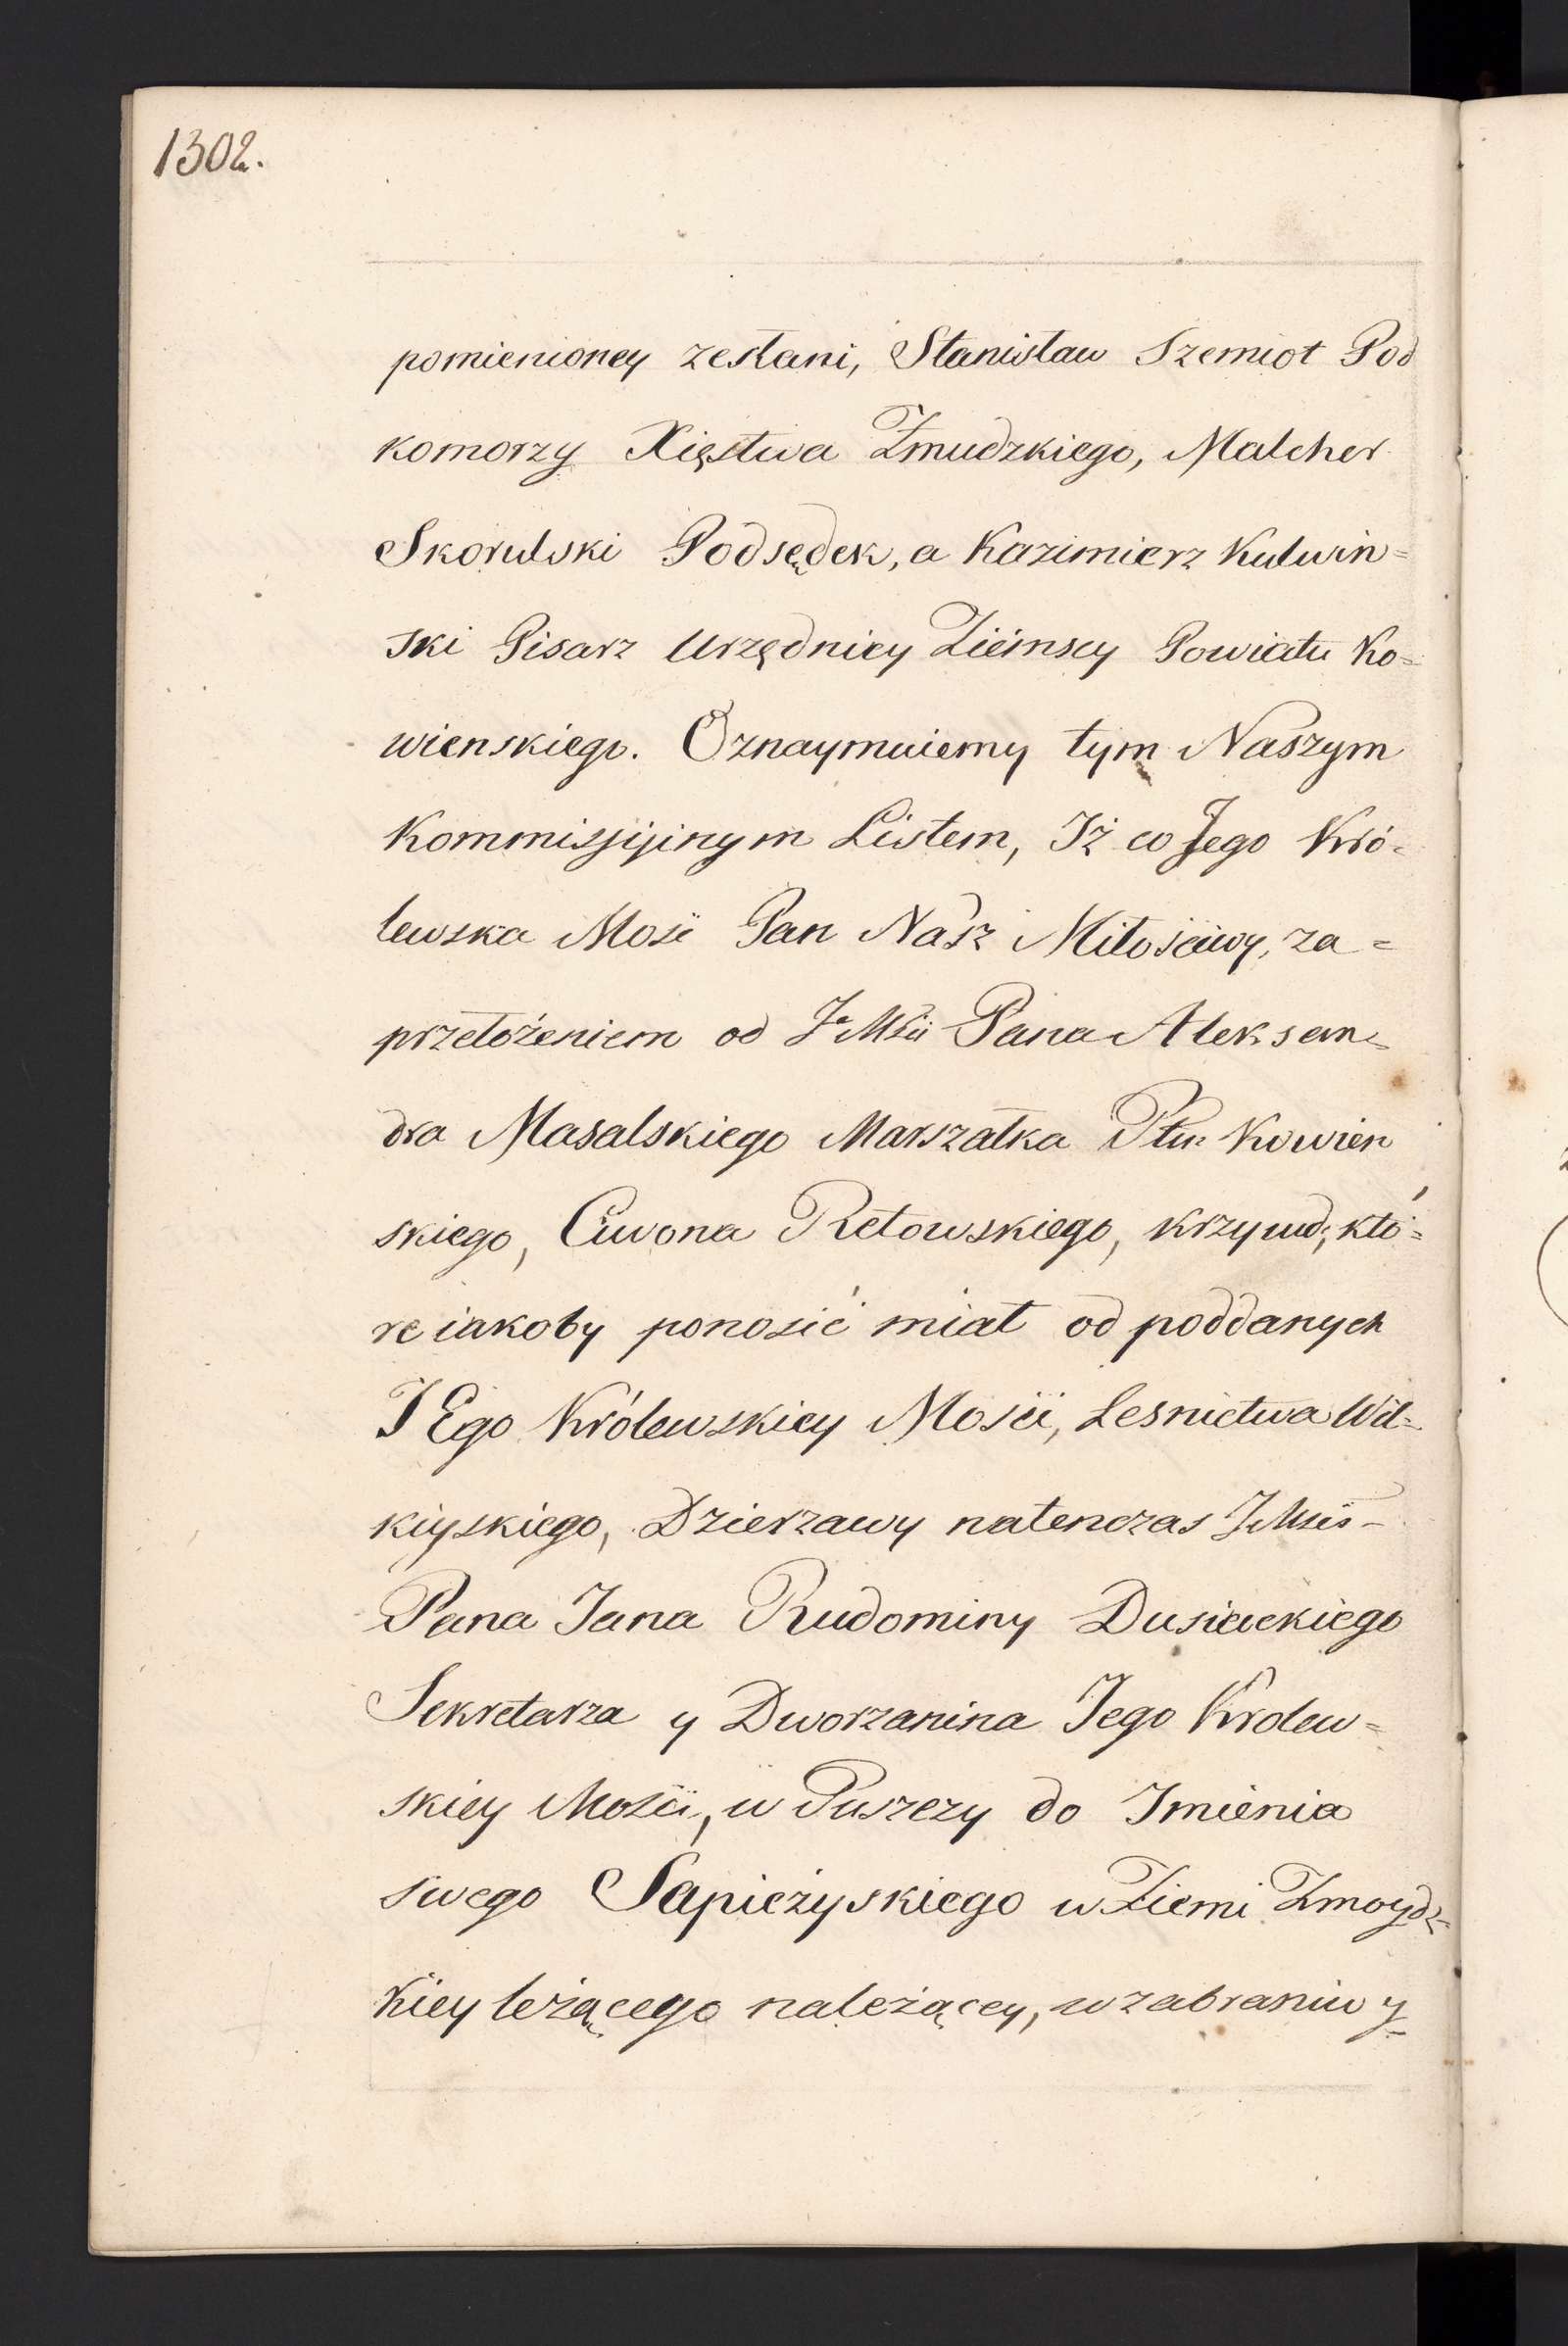 1302.
pomienioney zesłani, Stanisław Szemiot Pod
komorzy Xięstwa Zmudzkiego, Malcher
Skorulski Podsędek, a Kazimierz Kulwin=
ski Pisarz Urzędnicy Ziemscy Powiatu Ko=
wienskiego. Oznaymuiemy tym Naszym
Kommissyinym Listem, Iż co Jego Kró=
lewska Mość Pan Nasz Miłościwy, za=
przełożeniem od Je Mści Pana Aleksan=
dra Masalskiego Marszałka Pttu Kowien
skiego, Ciwona Retowskiego, krzywd, któ=
re iakoby ponosić miał od poddanych
JEgo Królewskiey Mości, Lesnictwa Wil=
kiyskiego, Dzierzawy natenczas JMści
Pana Jana Rudominy Dusiackiego
Sekretarza y Dworzanina Jego Krolew=
skiey Mości, w Puszczy do Imienia
swego Sapieżyskiego w Ziemi Zmoydz=
kiey leżącego należącey, w zabraniu y